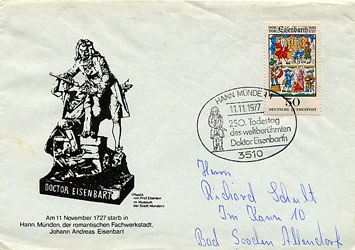 DOKTOR Eisenbarth
50
DEUTSCHE BUNDESPOST
HANN MÜNDEN 1
11.11.1977
250. Todestag
des weltberühmten
Doktor Eisenbarth
3510
DOCTOR EISENBART
(Plastik
von Prof. Eberlein
im Museum
der Stadt Münden)
Am 11 November 1727 starb in
Hann. Münden, der romantischen Fachwerkstadt,
Johann Andreas Eisenbart
Herrn
Richard Schult
Im Hain 10
Bad Sooden Allendorf